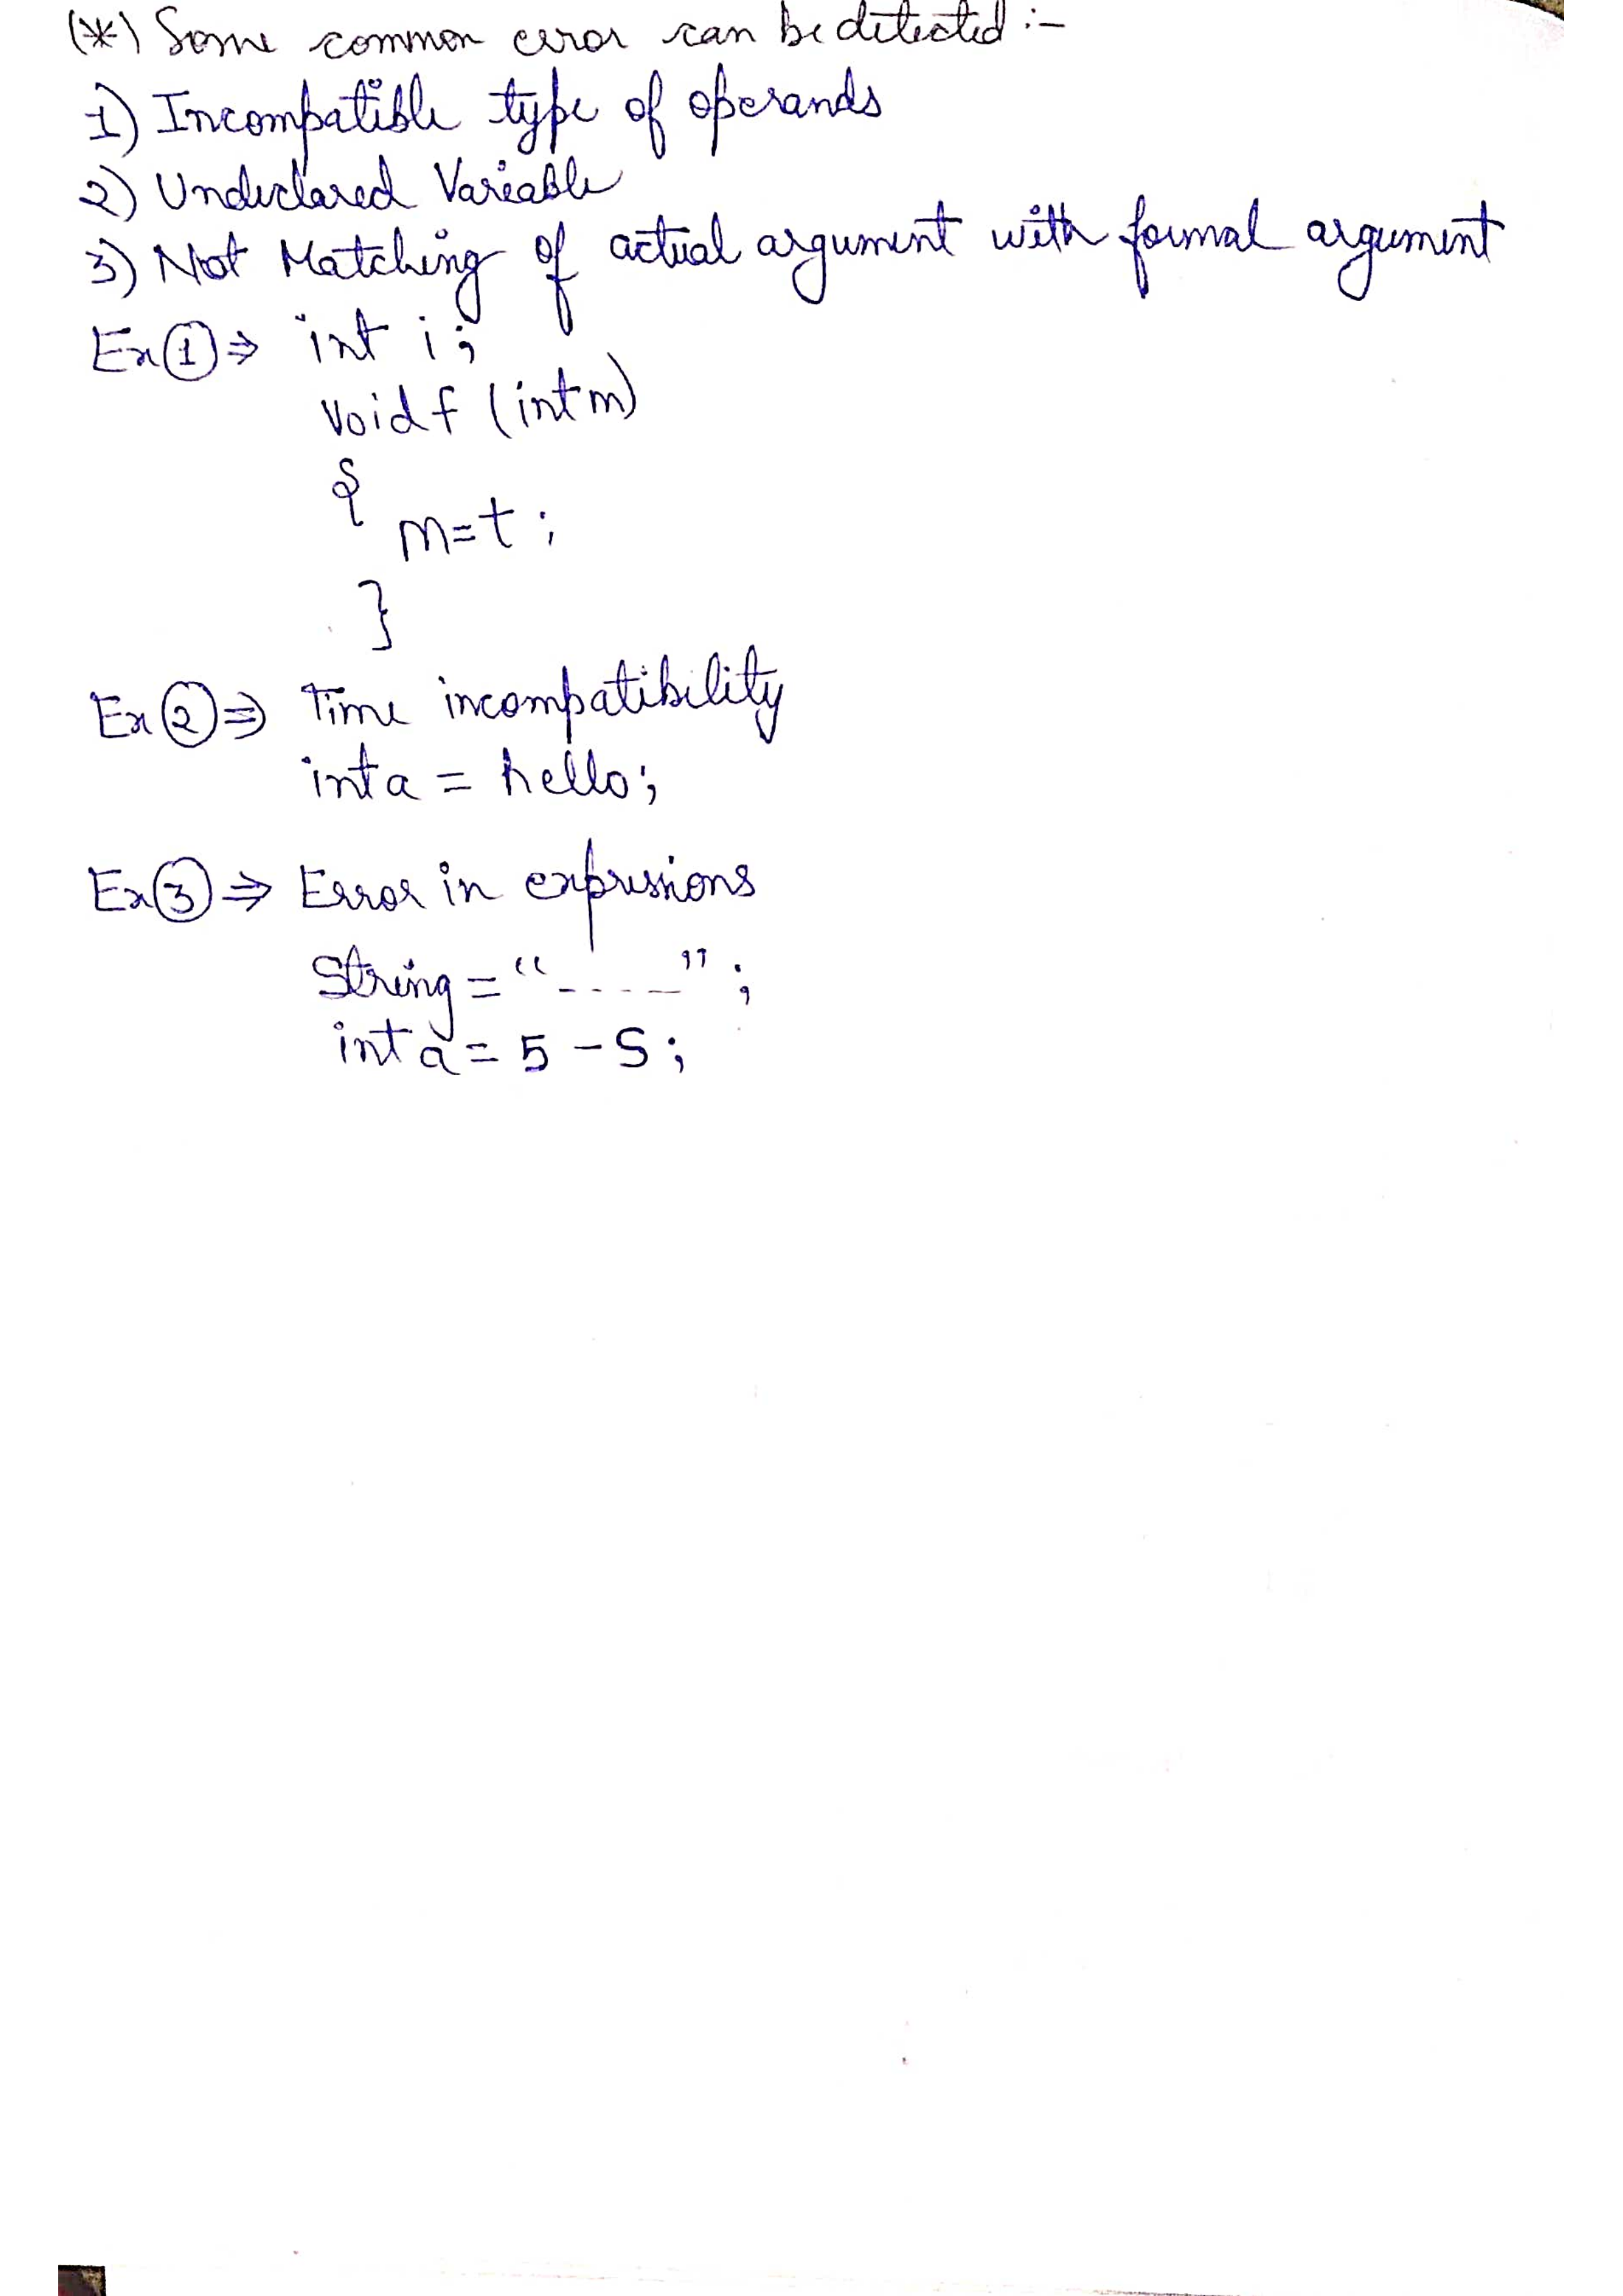 (*) Some common error can be detected :-
1) Incompatible type of operands
2) Undeclared Variable
3) Not Matching of actual argument with formal argument
Ex ① ⇒ int i;
void f (int m)
{
m=t;
}
Ex ② ⇒ Time incompatibility
int a = hello;
Ex ③ ⇒ Error in expressions
String = “-----”;
int a = 5 - S;